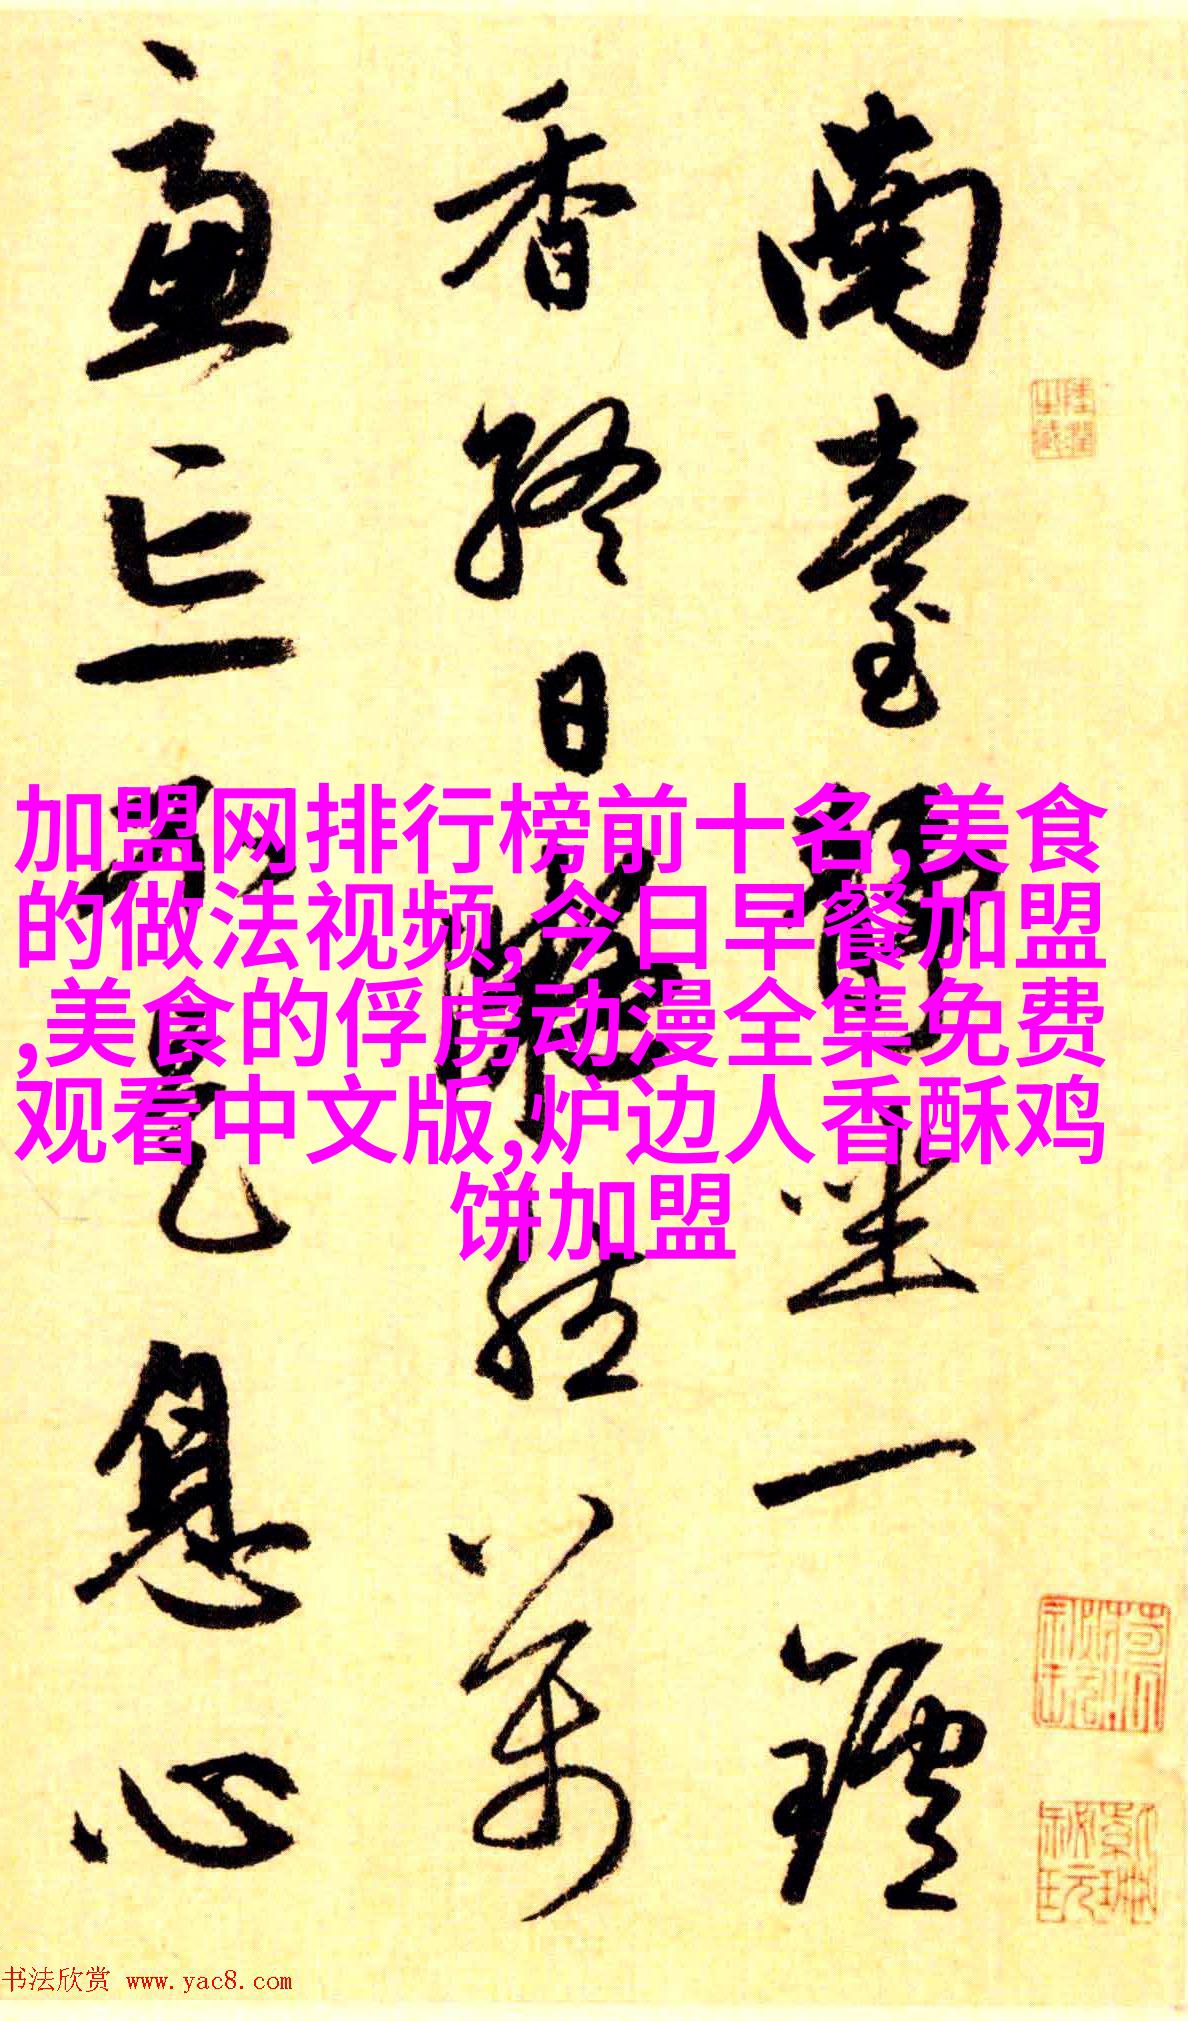 南臺靜坐一鑪
香終日凝然萬
慮忘不是息心
加盟网排行榜前十名,美食
的做法视频,今日早餐加盟
,美食的俘虏动漫全集免费
观看中文版,炉边人香酥鸡
饼加盟
书法欣赏 www.yac8.com